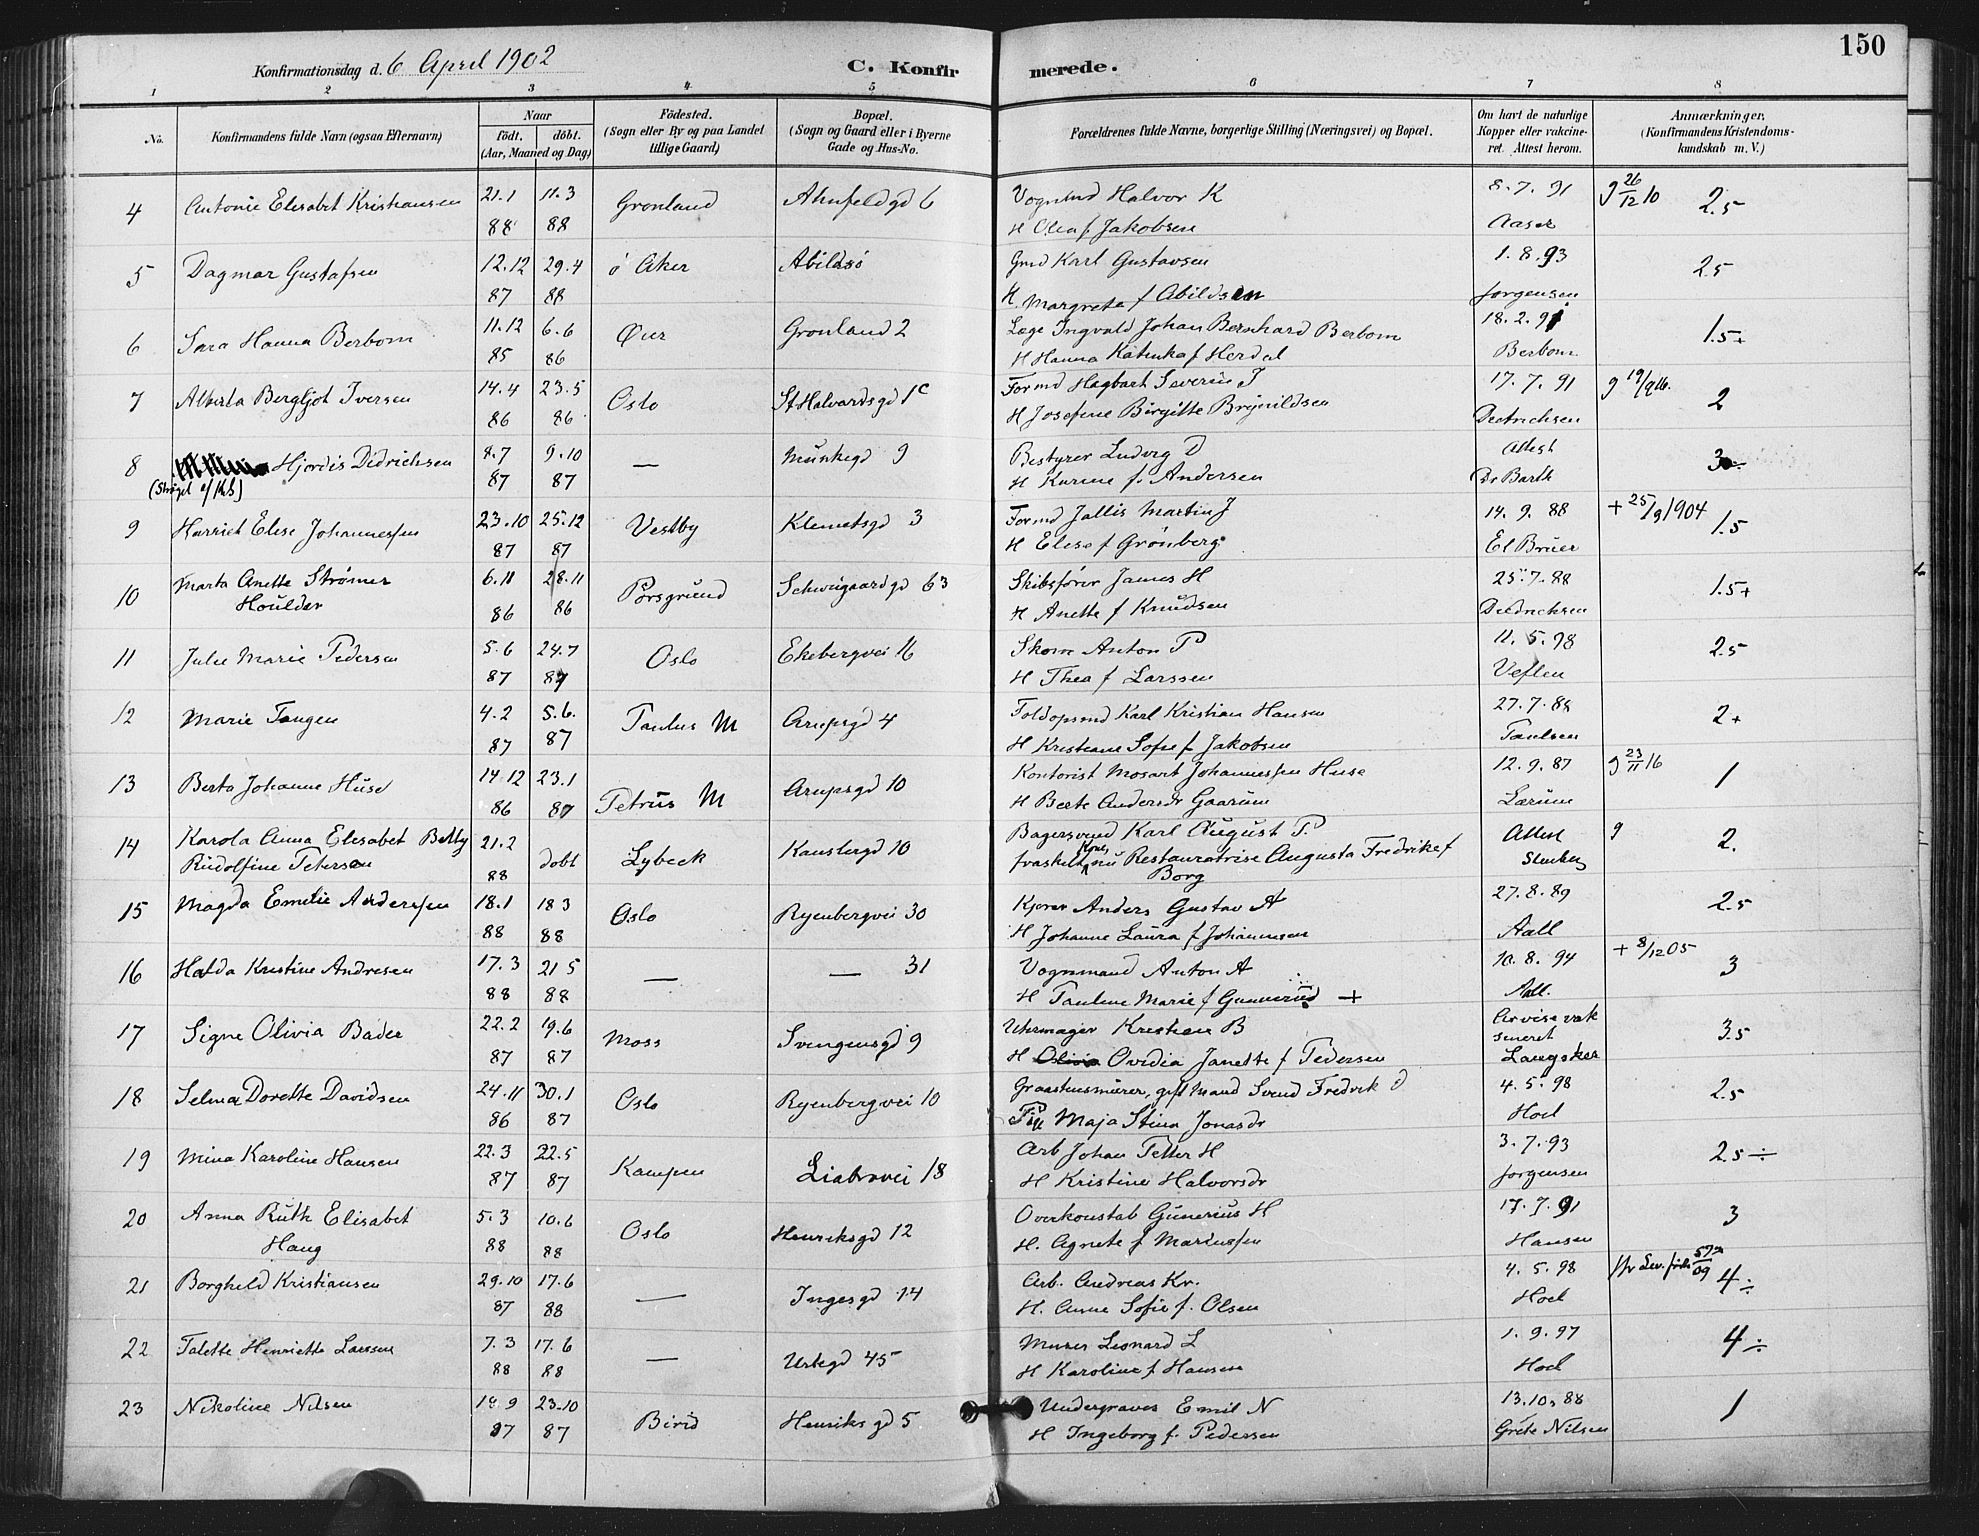 Konfirmationsdag d. 6 April 1902 C. Konfirmerede. 150
1 2 3 4 5 6 7 8
No. Konfirmandens fulde Navn (ogsaa Efternavn) Naar födt. döbt. (Aar, Maaned og Dag) Födested. (Sogn eller By og paa Landet tillige Gaard) Bopæl. (Sogn og Gaard eller i Byerne Gade og Hus-No. Forældrenes fulde Navne, borgerlige Stilling (Næringsvei) og Bopæl. Om havt de naturlige Kopper eller vakcineret. Attest herom. Anmærkninger. (Konfirmandens Kristendomskundskab m. V.)
4 Antonie Elisabet Kristiansen 21.1 11.3 Grønland Ahnfeldgd 6 Vognmd Halvor K 8.7.91 g 26/12 10 2.5
88 88 H Olea f Jakobsen Aaser
5 Dagmar Gustafsen 12.12 29.4 ö Aker Abildsö Karl Gustavsen 1.8.93 2.5
87 88 H. Margrete f Abildsen Jørgensen
6 Sara Hanna Berbom 11.12 6.6 Grønland 2 Læge Ingvald Johan Bernhard Berbom 18.2.91 1.5+
85 86 H Hanna Katinka f Herdal Berbom
7 Alberta Bergljot Iversen 14.4 23.5 Oslo St Halvardsgd 1c Formd Hagbart Severin I 17.7.91 g 19/9 16. 2
86 86 H Josefine Birgitte Brynildsen Diedrichsen
8 Hjordis Didrichsen 8.7 9.10 — Munkegd 9 Bestyrer Ludvig D Attest 3 ÷
87 87 H Karine f. Andersen Dr Barth
9 Harriet Elise Johannessen 23.10 25.12 Vestby Klemetsgd 3 Formd Jallis Martin J 14.9.88 + 25/9 1904 1.5
87 87 H Elise f Grønberg El Bruer
10 Marta Anette Strømer 6.11 28.11 Porsgrund Schweigaardgd 63 Skibsfører James H 25.7.88 1.5+
Houlder 86 86 H Anette f Knudsen Diedrichsen
11 Julie Marie Pedersen 5.6 24.7 Oslo Ekebergvei 16 Skom Anton P 11.5.98 2.5
87 87 H Thea f Larssen Veflen
12 Marie Tangen 4.2 5.6. Paulus M Arupsgd 4 Toldopsmd Karl Kristian Hansen 27.7.88 2+
87 87 H Kristiane Sofie f Jakobsen Paulsen
13 Berta Johanne Huse 14.12 23.1 Petrus M Arupsgd 10 Kontorist Mosart Johannessen Huse 12.9.87 g 23/11 16 1
86 87 H Berte Andersdr Gaarum Larum
14 Karola Anna Elisabet Betty 21.2 Lybeck Kanslergd 10 Bagersvend Karl August P. Attest g 2.
Rudolfine Petersen 88 döbt fraskilt nu Restauratrise Augusta Fredrike f
Borg
15 Magda Emilie Anderssen 18.1 18 3 Oslo Ryenbergvei 30 Kjører Anders Gustav A 27.8.89 2.5
88 88 H Johanne Laura f Johannsen Aall
16 Halda Kristine Andresen 17.3 21 5 — — 31 Vognmand Anton A 10.8.94 + 8/12 05 3
88 88 H Pauline Marie f Gunnerud + Aall.
17 Signe Olivia Bader 22.2 19.6 Moss Svengensgd 9 Uhrmager Kristian B 3.5
87 87 H Ovidia Janette f Pedersen
18 Selma Dorette Davidsen 24.11 30.1 Oslo Ryenbergvei 10 Graastensmurer, gift Mand Svend Fredrik D 4.5.98 2.5
86 87 Pige Maja Stina Jonasdr Hoel
19 Mina Karoline Hansen 22.3 22.5 Kampen Liabrovei 18 Arb Johan Petter H 3.7.93 2.5 ÷
87 87 H Kristine Halvorsdr Jorgensen
20 Anna Ruth Elisabet 5.3 10.6 Oslo Henriksgd 12 Overkonstab Gunerius H 17.7.91 3
Haug 88 88 H. Agnete f Mariussen Hansen
21 Borghild Kristiansen 29.10 17.6 — Ingesgd 14 Arb. Andreas Kr. 4.5.98 4 ÷
87 88 H. Anne Sofie f. Olsen Hoel
22 Talette Henriette Larssen 7.3 17.6 — Urtegd 45 Murer Leonard L 1.9.97 4 ÷
88 88 H Karoline f Hansen Hoel
23 Nikoline Nilsen 18.9 23.10 Birid Henriksgd 5 Undergraver Emil N 13.10.88 1
87 87 H Ingeborg f. Pedersen Grete Nilsen